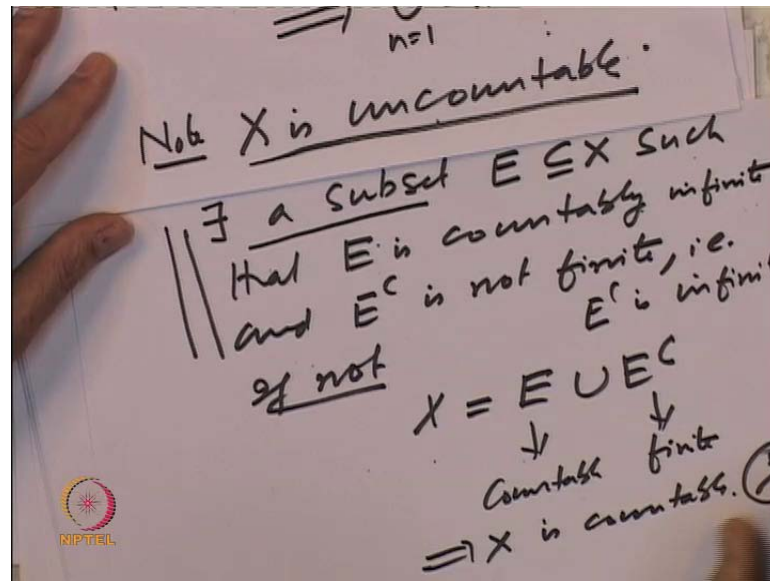 ⟹ ∪
n=1
Note X is uncountable.
∃ a subset E ⊆ X such
that E is countably infinite
and E^C is not finite, i.e.
E^C is infini
If not
X = E ∪ E^C
↓ ↓
Countable finite
⟹ X is countable.
NPTEL